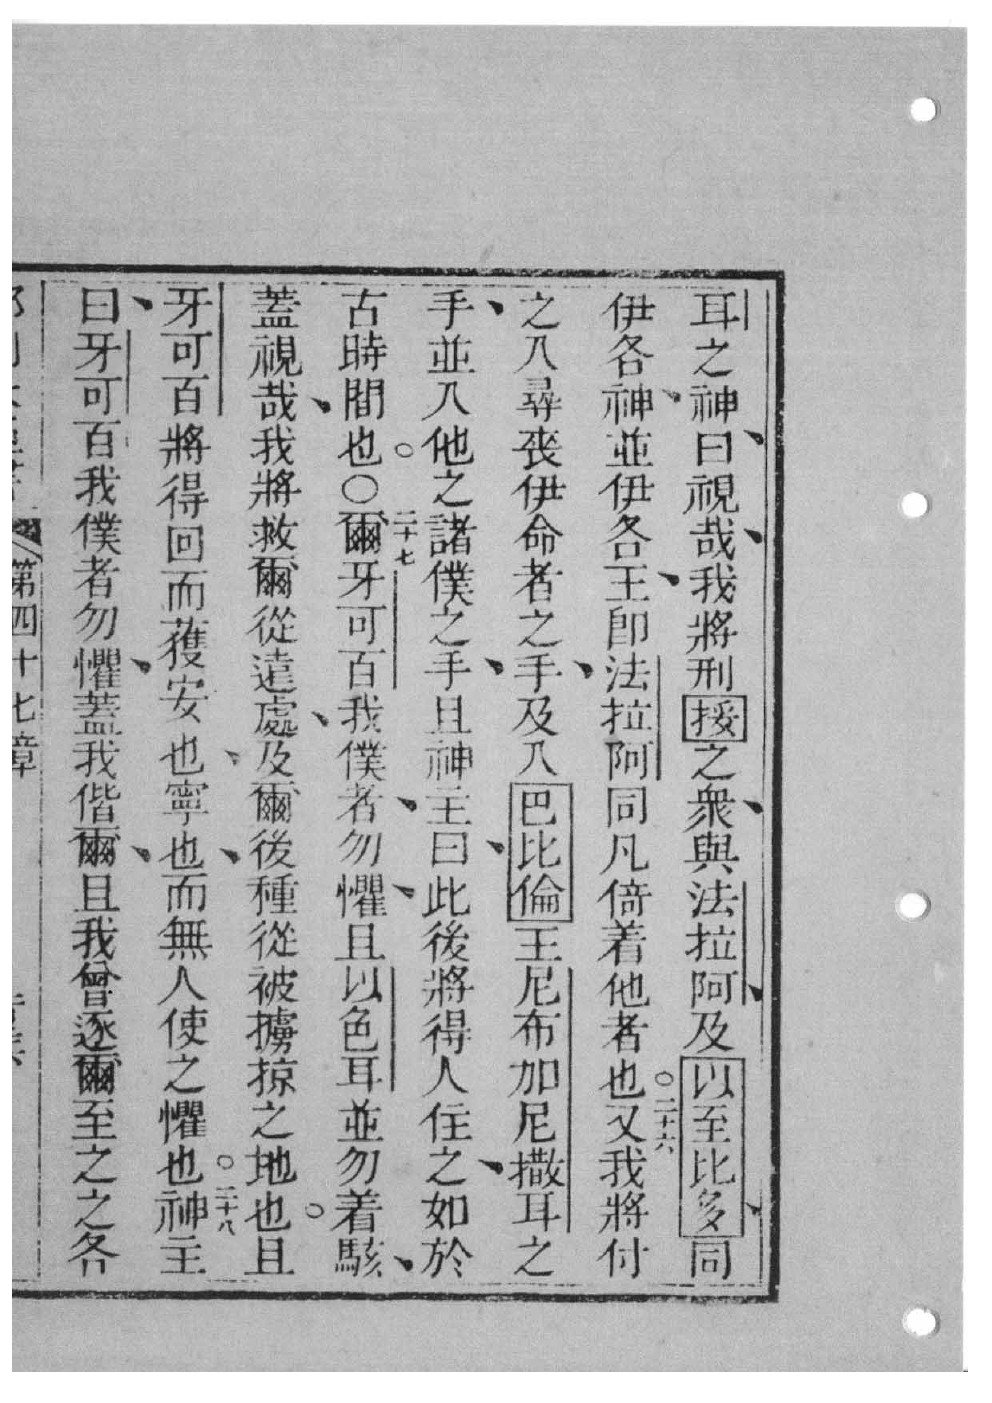 耳之神曰視哉我將刑挼之衆與法拉阿及以至比多同
伊各神並伊各王卽法拉阿同凡倚着他者也○二十六又我將付
之入尋喪伊命者之手及入巴比倫王尼布加尼撒耳之
手並入他之諸僕之手且神主曰此後將得人住之如於
古時間也○○二十七爾牙可百我僕者勿懼且以色耳並勿着駭
蓋視哉我將救爾從遠處及爾後種從被擄掠之地也○且
牙可百將得回而獲安也寧也而無人使之懼也○二十八神主
曰牙可百我僕者勿懼蓋我偕爾且我曾逐爾至之之各
第四十七章